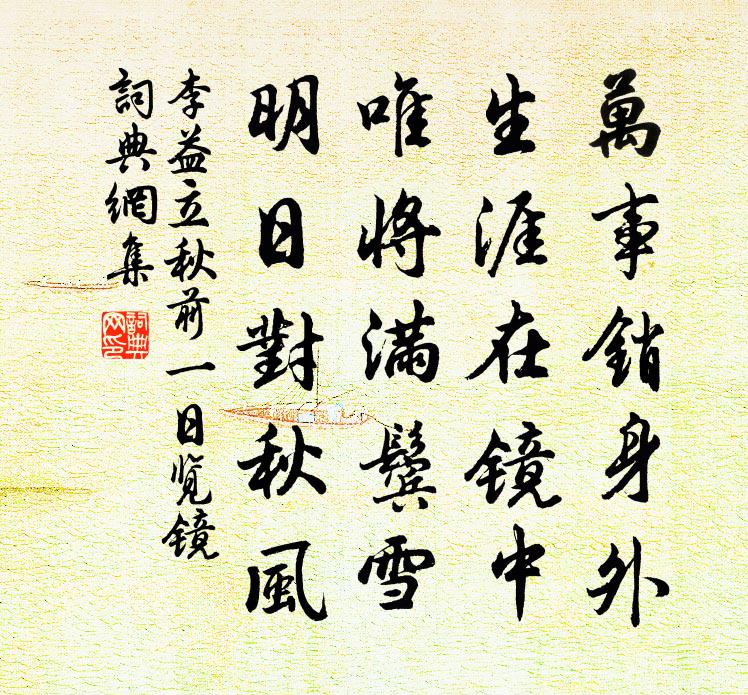 萬事銷身外
生涯在镜中
唯將满鬓雪
明日對秋風
李益立秋前一日览镜
詞典網集
詞典网印